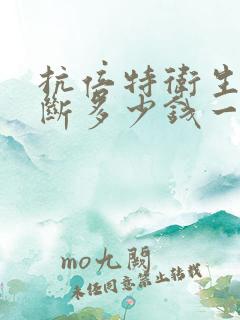 抗倍特衛生
斷多少錢一
mo九闕
未经同意禁止转载